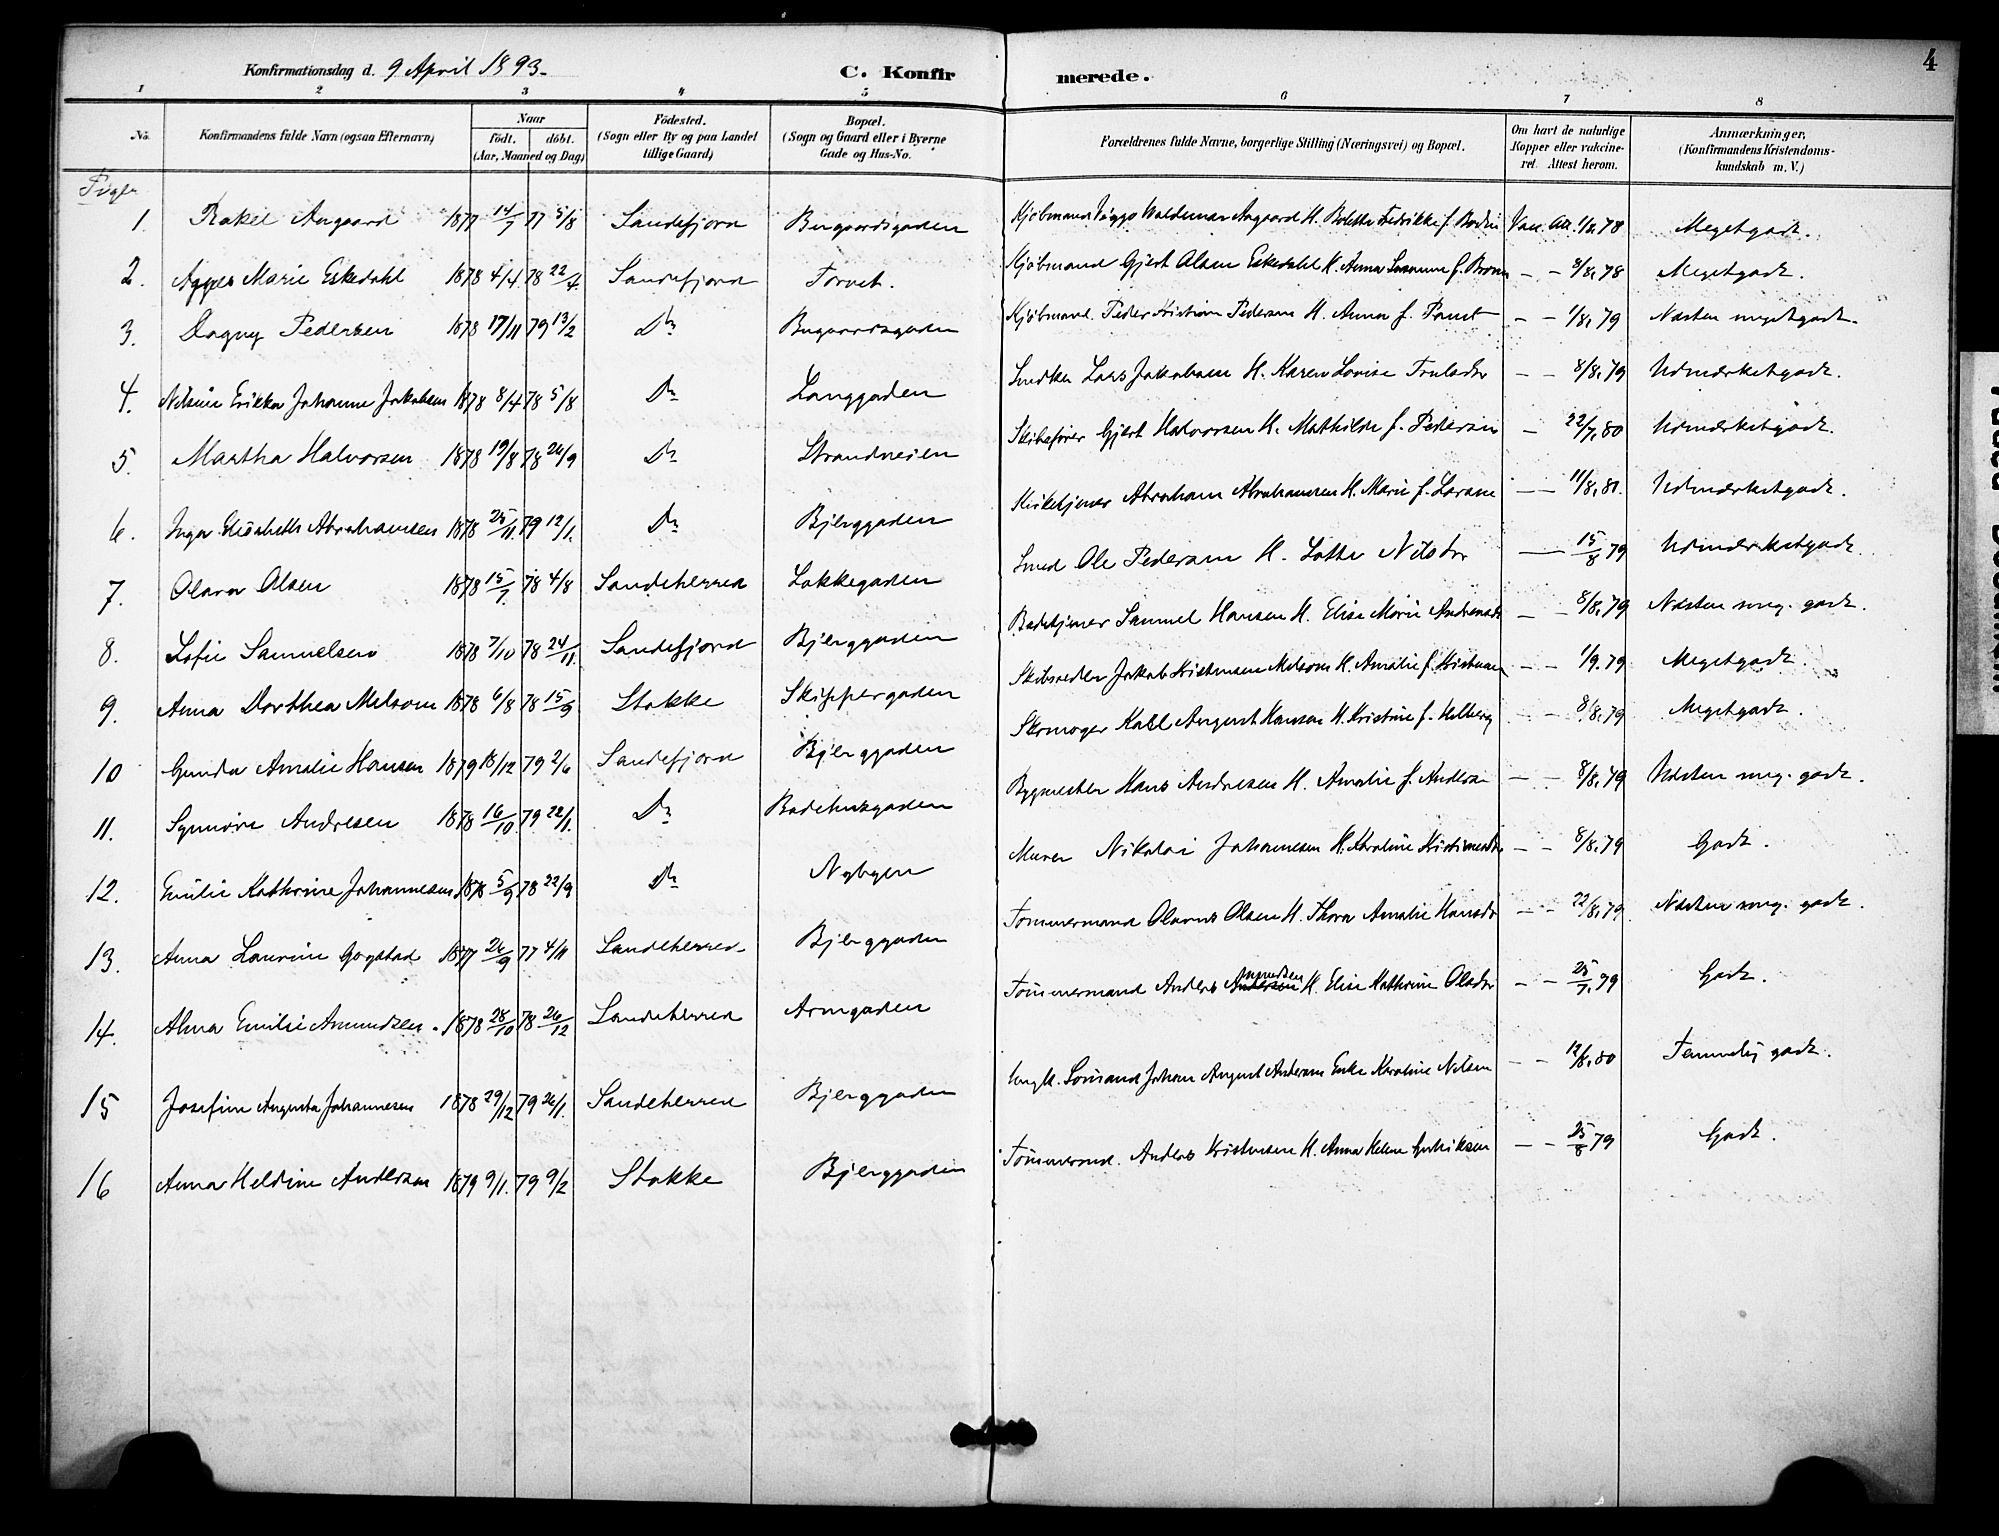 Konfirmationsdag d. 9 April 1893. C. Konfirmerede. 4
1 2 3 4 5 6 7 8
No. Konfirmandens fulde Navn (ogsaa Efternavn) Naar født. døbt. (Aar, Maaned og Dag) Fødested. (Sogn eller By og paa Landet tillige Gaard) Bopæl. (Sogn og Gaard eller i Byerne Gade og Hus-No. Forældrenes fulde Navne, borgerlige Stilling (Næringsvei) og Bopæl. Om havt de naturlige Kopper eller vakcineret. Attest herom. Anmærkninger, (Konfirmandens Kristendomskundskab m. V.)
Piger
1. Rakel Aagaard 1877 14/7 77 5/8 Sandefjord Bugaardsgaden Kjøbmand Viggo Waldemar Aagaard H. Bolette Fredrikke f. Bodin Vac. Att. 1/8, 78 Megetgodt.
2. Agnes Marie Eskedahl 1878 4/4 78 22/4. Sandefjord Torvet. Kjøbmand Gjert Olsen Eskedahl H. Anna Susanne f. Bruun — — 8/8, 78 Megetgodt.
3. Dagny Pedersen 1878 17/11 79 13/2 Do Bugaardsgaden Kjøbmand. Peder Kristian Pedersen H. Anna f. Faust — — 1/8, 79 Næsten megetgodt.
4. Nilsine Erikka Johanne Jakobsen 1878 8/4 78 5/8 Do Langgaden Snedker Lars Jakobsen H. Karen Lovise Trulsdtr — — 8/8, 79 Udmærketgodt.
5. Martha Halvorsen 1878 19/8 78 26/9 Do Strandveien Skibsfører Gjert Halvorsen H. Mathilde f. Pedersen — 22/7, 80 Udmærketgodt.
6. Inga Elisabeth Abrahamsen 1878 25/11. 79 12/1. Do Bjerggaden Kirketjener Abraham Abrahamsen H. Marie f. Larsen — — 11/8, 80. Udmærketgodt.
7. Olava Olsen 1878 15/7. 78 4/8 Sandeherred Løkkegaden Smed Ole Pedersen H. Lotte Nilsdtr — 15/8 79 Udmærketgodt.
8. Sofie Samuelsen 1878 7/10 78 24/11. Sandefjord Bjerggaden Badetjener Samuel Hansen H. Elise Marie Andreasdtr — 8/8, 79 Næsten meg. godt.
9. Anna Dorthea Melsom 1878 6/8 78 15/9 Stokke Skippergaden Skibsreder Jakob Kristensen Melsom H. Amalie f. Kristensen — — 1/9, 79 Megetgodt.
10 Gunda Amalie Hansen 1879 18/12 79 2/6 Sandefjord Bjerggaden Skomager Karl August Hansen H. Kristine f. Helberg — — 8/8, 79 Megetgodt.
11. Synnøve Andresen 1878 16/10 79 22/1. Do Badehusgaden Bygmester Hans Andresen H. Amalie f. Andersen — — 8/8, 79 Næsten meg. godt.
12. Emilie Kathrine Johannesen 1878 5/9 78 22/9 Do Nybyen Murer Nikolai Johannesen H. Karoline Kristiansdtr — — 8/8, 79 Godt.
13. Anna Laurine Gogstad 1877 26/9 77 4/11 Sandeherred. Bjerggaden Tømmermand Olavus Olsen H. Thora Amalie Hansdtr — — 22/8, 79 Næsten meg. godt.
14. Alma Emilie Amundsen. 1878 28/10 78 26/12 Sandeherred Armgaden Tømmermand Anders Andersen Amundsen H. Elise Kathrine Olsdtr — — 25/7, 79 Godt.
15 Josefine Augusta Johannesen 1878 29/12 79 26/1. Sandeherred Bjerggaden Ungk. Sømand Johan August Andersen Enke Karoline Nilsen — — 12/8, 80 Temmelig godt.
16 Anna Heldine Andersen 1879 9/1. 79 9/2 Stokke Bjerggaden Tømmermd. Anders Kristensen H. Anna Helene Henriksen — — 25/8 79 Godt.